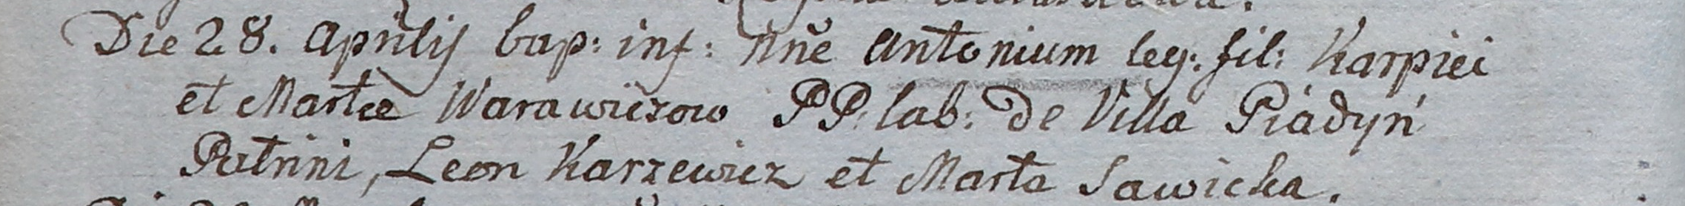 Die 28. Aprilij bap: inf: Nne Antonium leg: fil: Karpiei
et Martæ Warawiczow PP: lab: de Villa Piadyń
Patrini, Leon Karzewicz et Marta Sawicka.